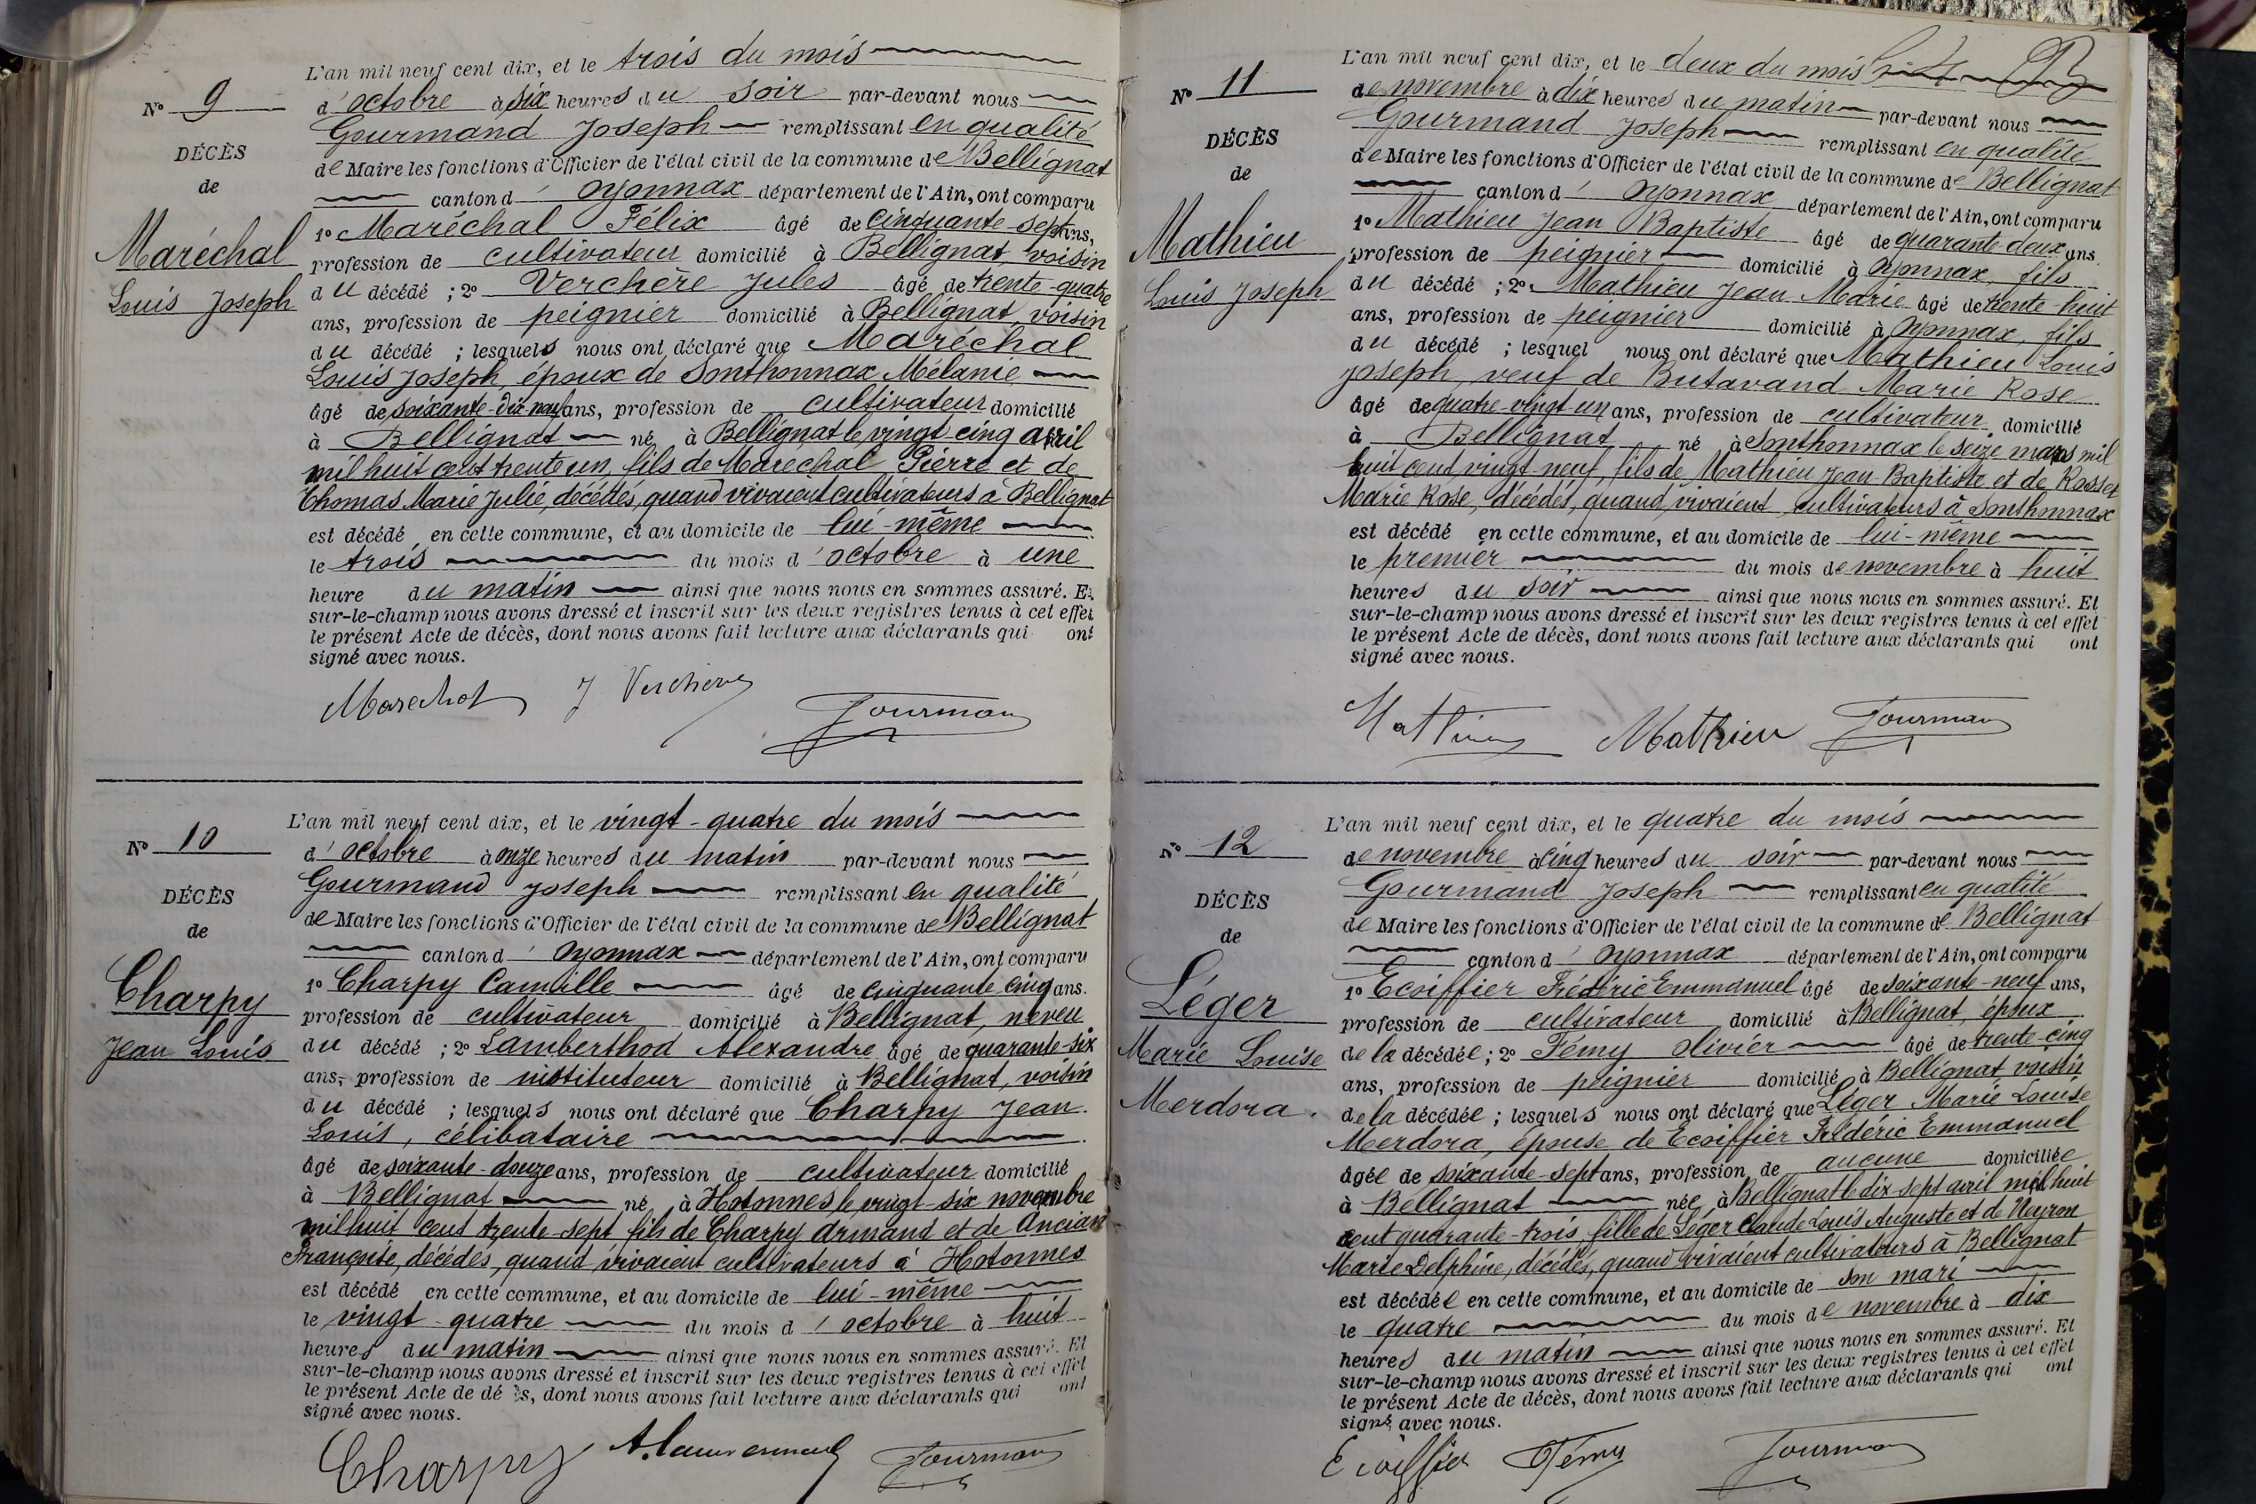 L'an mil neuf cent dix, et le trois du mois
N° 9
d'octobre à six heures du soir par-devant nous
Gourmand Joseph remplissant en qualité
DÉCÈS
de Maire les fonctions d'Officier de l'état civil de la commune de Bellignat
de
canton d'Oyonnax département de l'Ain, ont comparu
Maréchal
Louis Joseph
1° Maréchal Félix âgé de cinquante-sept ans,
profession de cultivateur domicilié à Bellignat, voisin
du décédé ; 2° Verchère Jules âgé de trente-quatre
ans, profession de peignier domicilié à Bellignat, voisin
du décédé ; lesquels nous ont déclaré que Maréchal
Louis Joseph, époux de Sonthonnax Mélanie
âgé de soixante-dix-neuf ans, profession de cultivateur domicilié
à Bellignat né à Bellignat le vingt-cinq avril
mil huit cent trente un, fils de Maréchal Pierre et de
Thomas Marie Julie, décédés, quand vivaient cultivateurs à Bellignat
est décédé en cette commune, et au domicile de lui-même
le trois du mois d'octobre à une
heure du matin ainsi que nous nous en sommes assuré. Et
sur-le-champ nous avons dressé et inscrit sur les deux registres tenus à cet effet
le présent Acte de décès, dont nous avons fait lecture aux déclarants qui ont
signé avec nous.
Marechal J Verchere Gourmand
L'an mil neuf cent dix, et le vingt-quatre du mois
N° 10
d'octobre à onze heures du matin par-devant nous
Gourmand Joseph remplissant en qualité
DÉCÈS
de Maire les fonctions d'Officier de l'état civil de la commune de Bellignat
de
canton d'Oyonnax département de l'Ain, ont comparu
Charpy
Jean Louis
1° Charpy Camille âgé de cinquante cinq ans.
profession de cultivateur domicilié à Bellignat, neveu
du décédé ; 2° Lamberthod Alexandre âgé de quarante-six
ans, profession de instituteur domicilié à Bellignat, voisin
du décédé ; lesquels nous ont déclaré que Charpy Jean
Louis, célibataire
âgé de soixante-douze ans, profession de cultivateur domicilié
à Bellignat né à Hotonnes le vingt-six novembre
mil huit cent trente-sept fils de Charpy Armand et de Ancian
Françoise, décédés, quand vivaient cultivateurs à Hotonnes
est décédé en cette commune, et au domicile de lui-même
le vingt-quatre du mois d'octobre à huit
heures du matin ainsi que nous nous en sommes assuré. Et
sur-le-champ nous avons dressé et inscrit sur les deux registres tenus à cet effet
le présent Acte de dé ès, dont nous avons fait lecture aux déclarants qui ont
signé avec nous.
Charpy Gourmand
L'an mil neuf cent dix, et le deux du mois
N° 11
de novembre à dix heures du matin par-devant nous
Gourmand Joseph remplissant en qualité
DÉCÈS
de Maire les fonctions d'Officier de l'état civil de la commune de Bellignat
de
canton d'Oyonnax département de l'Ain, ont comparu
Mathieu
Louis Joseph
1° Mathieu Jean Baptiste âgé de quarante deux ans
profession de peignier domicilié à Oyonnax, fils
du décédé ; 2° Mathieu Jean Marie âgé de trente-huit
ans, profession de peignier domicilié à Oyonnax, fils
du décédé ; lesquel nous ont déclaré que Mathieu Louis
Joseph, veuf de Butavand Marie Rose
âgé de quatre-vingt-un ans, profession de cultivateur domicilié
à Bellignat né à Sonthonnax le seize mars mil
huit cent vingt-neuf, fils de Mathieu Jean-Baptiste et de Rosset
Marie Rose, décédés, quand vivaient cultivateurs à Sonthonnax
est décédé en cette commune, et au domicile de lui-même
le premier du mois de novembre à huit
heures du soir ainsi que nous nous en sommes assuré. Et
sur-le-champ nous avons dressé et inscrit sur les deux registres tenus à cet effet
le présent Acte de décès, dont nous avons fait lecture aux déclarants qui ont
signé avec nous.
Mathieu Mathieu Gourmand
L'an mil neuf cent dix, et le quatre du mois
N° 12
de novembre à cinq heures du soir par-devant nous
Gourmand Joseph remplissant en qualité
DÉCÈS
de Maire les fonctions d'Officier de l'état civil de la commune de Bellignat
de
canton d'Oyonnax département de l'Ain, ont comparu
Léger
Marie Louise
Merdora.
1° Ecoiffier Frédéric Emmanuel âgé de soixante-neuf ans,
profession de cultivateur domicilié à Bellignat, époux
de la décédée ; 2° Fémy Olivier âgé de trente-cinq
ans, profession de peignier domicilié à Bellignat voisin
de la décédée ; lesquels nous ont déclaré que Léger Marie Louise
Merdora, épouse de Ecoiffier Frédéric Emmanuel
âgée de soixante-sept ans, profession de aucune domiciliée
à Bellignat née à Bellignat le dix-sept avril mil huit
cent quarante-trois, fille de Léger Claude Louis Auguste et de Neyron
Marie Delphine, décédés, quand vivaient cultivateurs à Bellignat
est décédée en cette commune, et au domicile de son mari
le quatre du mois de novembre à dix
heures du matin ainsi que nous nous en sommes assuré. Et
sur-le-champ nous avons dressé et inscrit sur les deux registres tenus à cet effet
le présent Acte de décès, dont nous avons fait lecture aux déclarants qui ont
signé avec nous.
Ecoiffier Fémy Gourmand